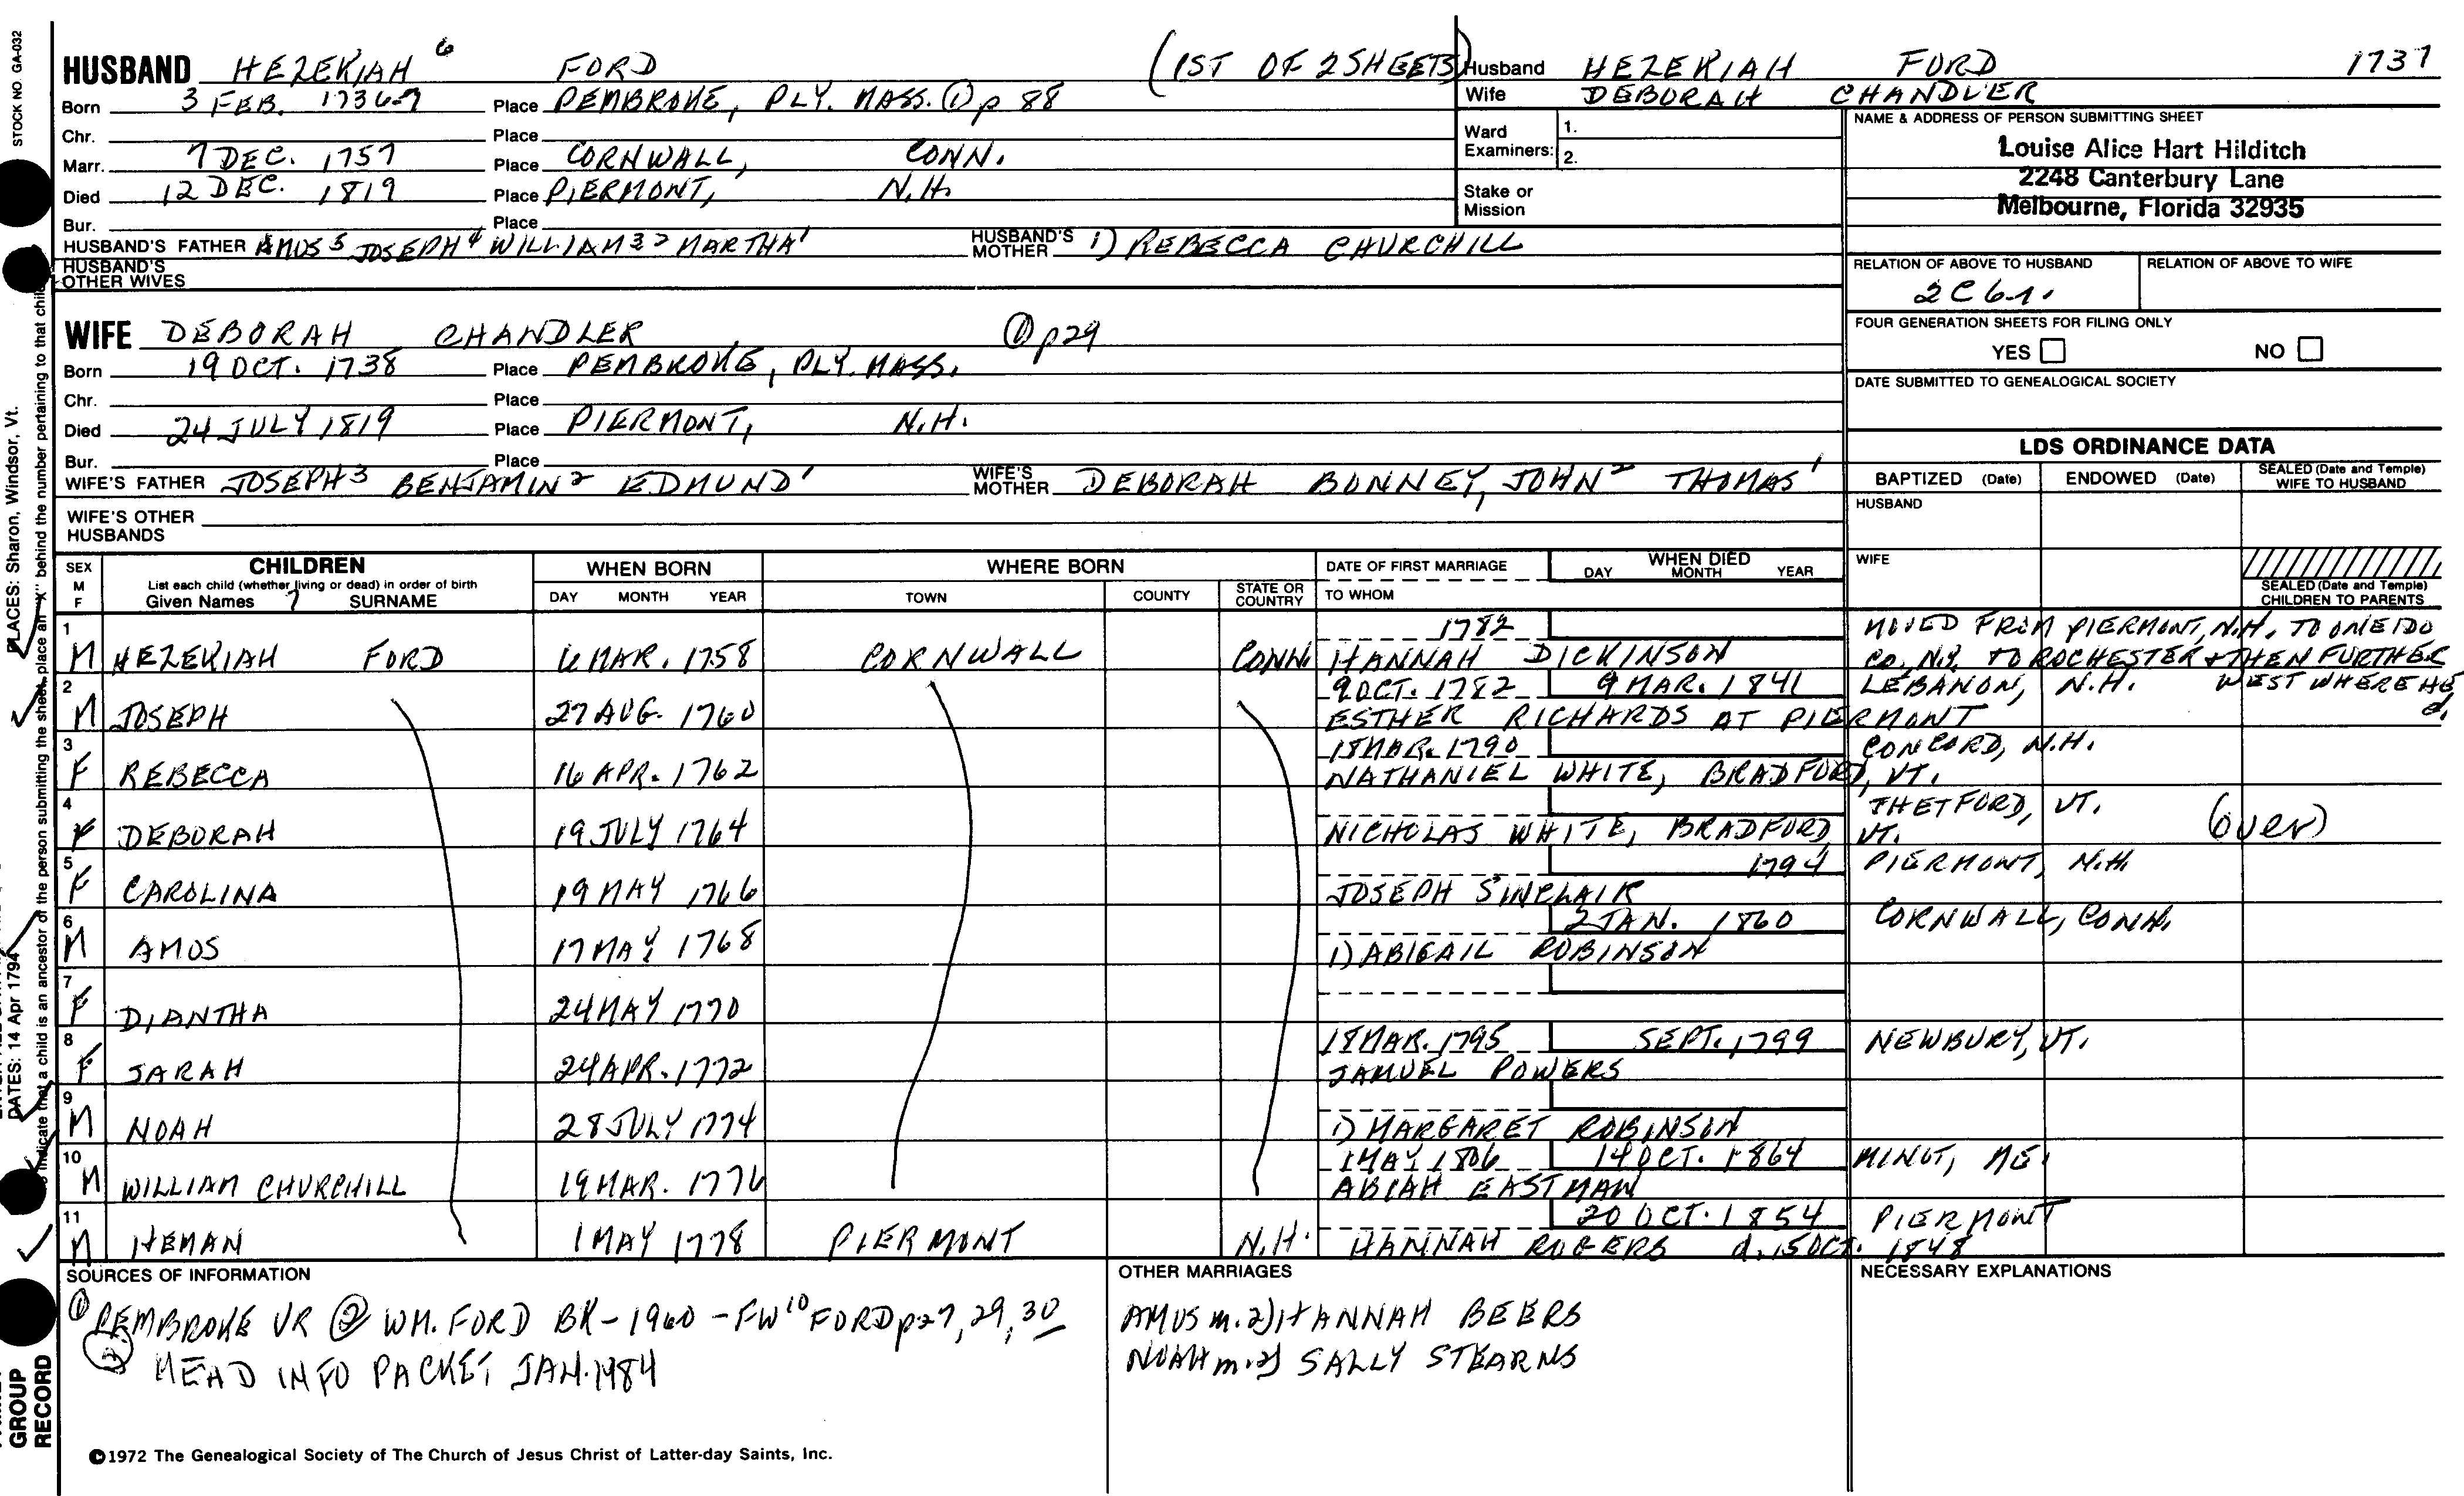 HUSBAND HEZEKIAH 6 FORD (1ST OF 2 SHEETS)
Born 3 FEB. 1736-7 Place PEMBROKE, PLY. MASS. ① p 88
Chr. Place
Marr. 7 DEC. 1757 Place CORNWALL, CONN.
Died 12 DEC. 1819 Place PIERMONT, N.H.
Bur. Place
HUSBAND'S FATHER AMOS 5 JOSEPH 4 WILLIAM 3 2 MARTHA 1 HUSBAND'S MOTHER 1) REBECCA CHURCHILL
HUSBAND'S OTHER WIVES
WIFE DEBORAH CHANDLER ① p29
Born 19 OCT. 1738 Place PEMBROKE, PLY. MASS.
Chr. Place
Died 24 JULY 1819 Place PIERMONT, N.H.
Bur. Place
WIFE'S FATHER JOSEPH 3 BENJAMIN 2 EDMUND 1 WIFE'S MOTHER DEBORAH BONNEY, JOHN 2 THOMAS 1
WIFE'S OTHER HUSBANDS
Husband HEZEKIAH FORD 1737
Wife DEBORAH CHANDLER
Ward Examiners: 1.
2.
Stake or Mission
NAME & ADDRESS OF PERSON SUBMITTING SHEET
Louise Alice Hart Hilditch
2248 Canterbury Lane
Melbourne, Florida 32935
RELATION OF ABOVE TO HUSBAND RELATION OF ABOVE TO WIFE
2C6r.
FOUR GENERATION SHEETS FOR FILING ONLY
YES NO
DATE SUBMITTED TO GENEALOGICAL SOCIETY
LDS ORDINANCE DATA
BAPTIZED (Date) ENDOWED (Date) SEALED (Date and Temple) WIFE TO HUSBAND
HUSBAND
WIFE
SEALED (Date and Temple) CHILDREN TO PARENTS
SEX M F CHILDREN WHEN BORN WHERE BORN DATE OF FIRST MARRIAGE WHEN DIED
List each child (whether living or dead) in order of birth
Given Names 7 SURNAME DAY MONTH YEAR TOWN COUNTY STATE OR COUNTRY TO WHOM DAY MONTH YEAR
1 1782 MOVED FROM PIERMONT, N.H. TO ONEIDO
M HEZEKIAH FORD 6 MAR. 1758 CORNWALL CONN. HANNAH DICKINSON CO., N.Y. TO ROCHESTER + THEN FURTHER
2 9 OCT. 1782 9 MAR. 1841 LEBANON, N.H. WEST WHERE HE d.
M JOSEPH 27 AUG. 1760 ESTHER RICHARDS AT PIERMONT
3 18 MAR. 1790 CONCORD, N.H.
F REBECCA 16 APR. 1762 NATHANIEL WHITE, BRADFORD, VT.
4 THETFORD, VT. (over)
F DEBORAH 19 JULY 1764 NICHOLAS WHITE, BRADFORD VT.
5 1794 PIERMONT, N.H.
F CAROLINA 19 MAY 1766 JOSEPH SINCLAIR
6 2 JAN. 1860 CORNWALL, CONN.
M AMOS 17 MAY 1768 1) ABIGAIL ROBINSON
7
F DIANTHA 24 MAY 1770
8 18 MAR. 1795 SEPT. 1799 NEWBURY, VT.
F SARAH 24 APR. 1772 SAMUEL POWERS
9
M NOAH 28 JULY 1774 1) MARGARET ROBINSON
10 1 MAY 1806 14 OCT. 1864 MINOT, ME.
M WILLIAM CHURCHILL 19 MAR. 1776 ABIAH EASTMAN
11 20 OCT. 1854 PIERMONT
M HEMAN 1 MAY 1778 PIERMONT N.H. HANNAH ROGERS d. 15 OCT. 1848
SOURCES OF INFORMATION
① PEMBROKE VR ② WM. FORD BK - 1960 - FW 10 FORD p27, 29, 30
MEAD INFO PACKET JAN. 1984
OTHER MARRIAGES
AMOS m. 2) HANNAH BEERS
NOAH m. 2) SALLY STEARNS
NECESSARY EXPLANATIONS
©1972 The Genealogical Society of The Church of Jesus Christ of Latter-day Saints, Inc.
STOCK NO. GA-032
PLACES: Sharon, Windsor, Vt.
DATES: 14 Apr 1794
indicate that a child is an ancestor of the person submitting the sheet, place an "X" behind the number pertaining to that child
GROUP
RECORD